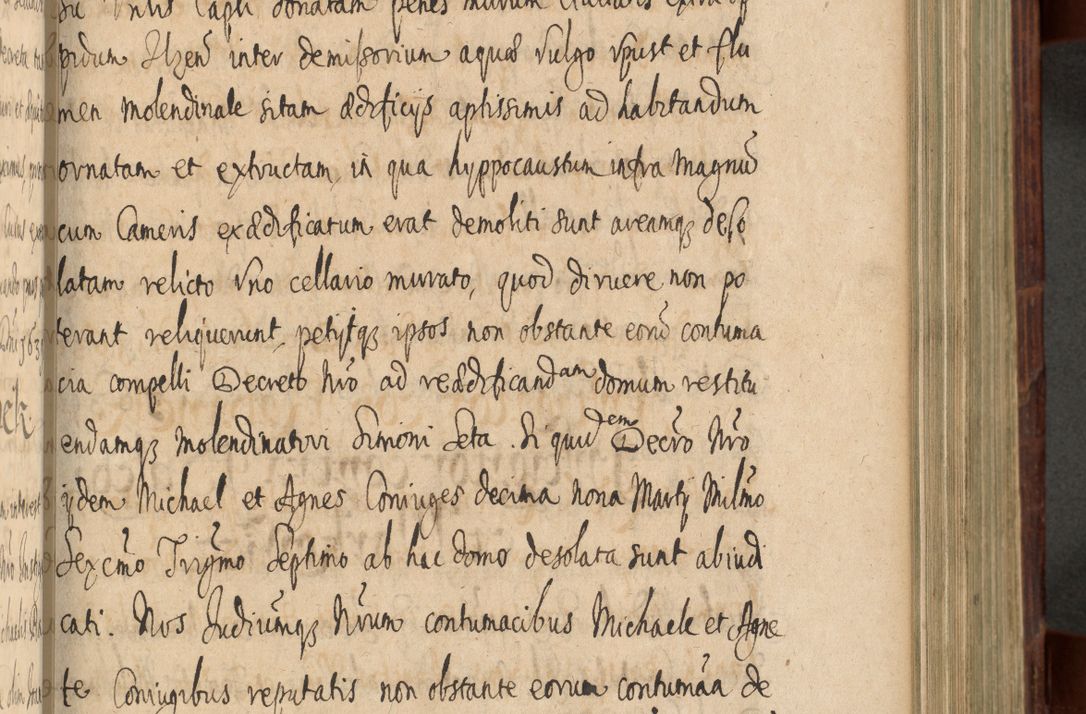 Capli donatam penes murum
pidum Ilzen inter demissorium aquæ vulgo vpust et flu
men Molendinale sitam ædificijs aptissimis ad habitandum
ornatam et extructam, in qua hyppocaustum infra magnu̅
cum Cameris exædificatum erat demoliti sunt areamq₃ deso
latam relicto vno cellario murato, quod diruere non po
terant reliquerunt, petijtq₃ ipsos non obstante eoru̅ contuma
cia compelli Decreto Nro̅ ad reædificandam domum restitu
endamq₃ Molendinatori Simoni Seta. Siquidem Decro̅ Nro̅
ijdem Michael et Agnes Coniuges decima nona Martij Milmo̅
Sexcmo̅ Trigmo̅ Septimo ab hac domo desolata sunt abiudi
cati. Nos Judiumq₃ Nrum̅ contumacibus Michaele et Agne
te Coniugibus reputatis non obstante eorum contumacia de